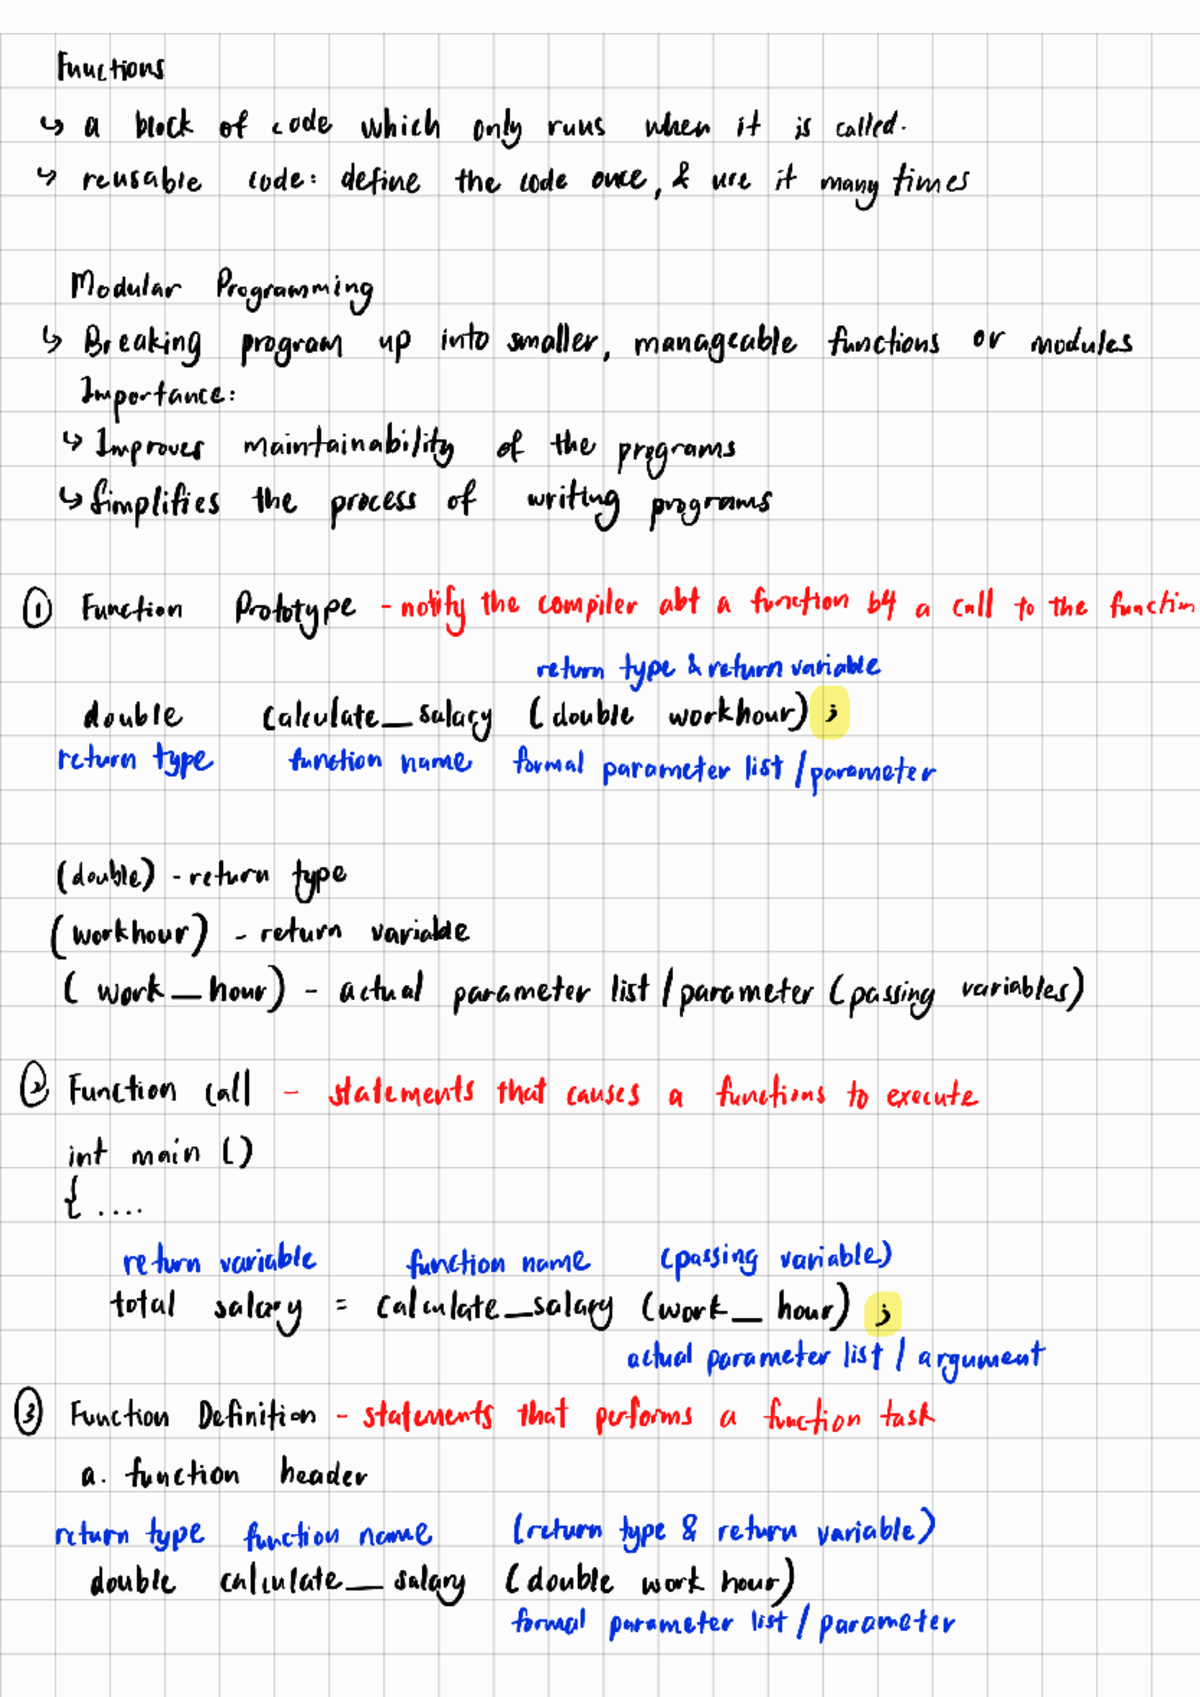 Functions
↳ a block of code which only runs when it is called.
↳ reusable code: define the code once, & use it many times
Modular Programming
↳ Breaking program up into smaller, manageable functions or modules
Importance:
↳ Improves maintainability of the programs
↳ Simplifies the process of writing programs
① Function Prototype - notify the compiler abt a function by a call to the function
return type & return variable
double calculate_salary (double workhour);
return type function name formal parameter list / parameter
(double) - return type
(workhour) - return variable
(work_hour) - actual parameter list / parameter (passing variables)
② Function call - statements that causes a functions to execute
int main ()
{ ....
return variable function name (passing variable)
total salary = calculate_salary (work_hour);
actual parameter list / argument
③ Function Definition - statements that performs a function task
a. function header
return type function name (return type & return variable)
double calculate_salary (double work hour)
formal parameter list / parameter